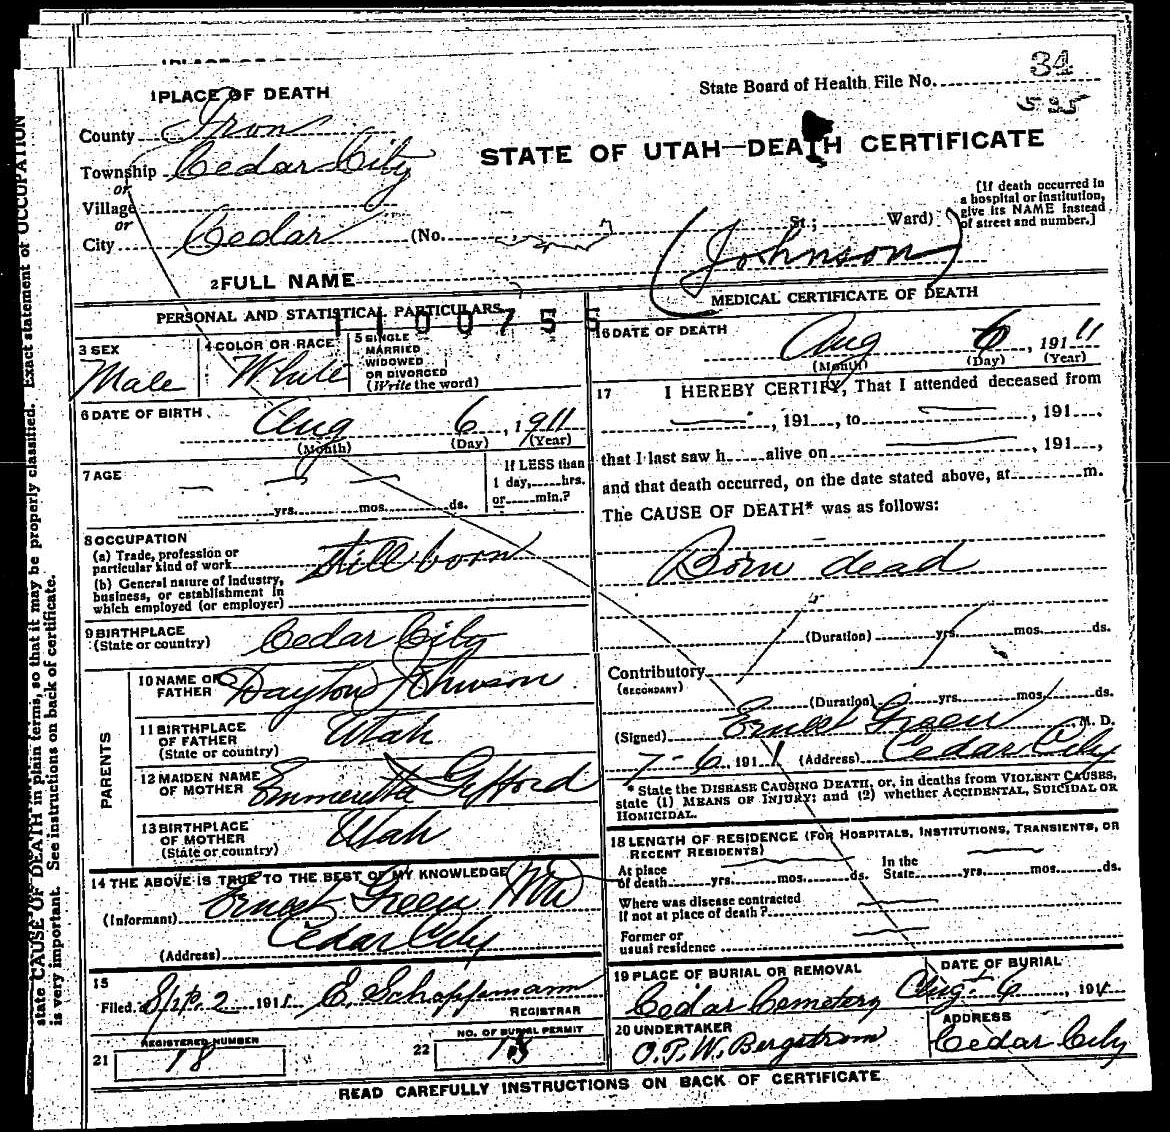 1 PLACE OF DEATH
State Board of Health File No. 34
595
County Iron
Township Cedar City
or
Village
or
City Cedar (No. St.; Ward)
STATE OF UTAH—DEATH CERTIFICATE
[If death occurred in
a hospital or institution,
give its NAME instead
of street and number.]
2 FULL NAME (Johnson)
PERSONAL AND STATISTICAL PARTICULARS
1100755
3 SEX
Male
4 COLOR OR RACE
White
5 SINGLE
MARRIED
WIDOWED
OR DIVORCED
(Write the word)
6 DATE OF BIRTH
Aug 6, 1911
(Month) (Day) (Year)
7 AGE
yrs. mos. ds.
If LESS than
1 day, hrs.
or min.?
8 OCCUPATION
(a) Trade, profession or
particular kind of work
Still born
(b) General nature of industry,
business, or establishment in
which employed (or employer)
9 BIRTHPLACE
(State or country)
Cedar City
PARENTS
10 NAME OF
FATHER
Dayton Johnson
11 BIRTHPLACE
OF FATHER
(State or country)
Utah
12 MAIDEN NAME
OF MOTHER
Emmeretta Gifford
13 BIRTHPLACE
OF MOTHER
(State or country)
Utah
14 THE ABOVE IS TRUE TO THE BEST OF MY KNOWLEDGE
(Informant) Ernest Green MD
(Address) Cedar City
15
Filed Sept. 2 1911 E. Schoppmann
REGISTRAR
21 REGISTERED NUMBER
18
22 NO. OF BURIAL PERMIT
18
MEDICAL CERTIFICATE OF DEATH
16 DATE OF DEATH
Aug 6, 1911
(Month) (Day) (Year)
17 I HEREBY CERTIFY, That I attended deceased from
, 191 , to , 191 ,
that I last saw h alive on , 191 ,
and that death occurred, on the date stated above, at m.
The CAUSE OF DEATH* was as follows:
Born dead
(Duration) yrs. mos. ds.
Contributory
(SECONDARY)
(Duration) yrs. mos. ds.
(Signed) Ernest Green M. D.
7-6, 1911 (Address) Cedar City
* State the DISEASE CAUSING DEATH, or, in deaths from VIOLENT CAUSES,
state (1) MEANS OF INJURY; and (2) whether ACCIDENTAL, SUICIDAL OR
HOMICIDAL.
18 LENGTH OF RESIDENCE (FOR HOSPITALS, INSTITUTIONS, TRANSIENTS, OR
RECENT RESIDENTS)
At place
of death yrs. mos. ds.
In the
State yrs. mos. ds.
Where was disease contracted
if not at place of death?
Former or
usual residence
19 PLACE OF BURIAL OR REMOVAL
Cedar Cemetery
DATE OF BURIAL
Aug. 6, 1911
20 UNDERTAKER
O.P.W. Bergstrom
ADDRESS
Cedar City
READ CAREFULLY INSTRUCTIONS ON BACK OF CERTIFICATE
state CAUSE OF DEATH in plain terms, so that it may be properly classified. Exact statement of OCCUPATION
is very important. See instructions on back of certificate.